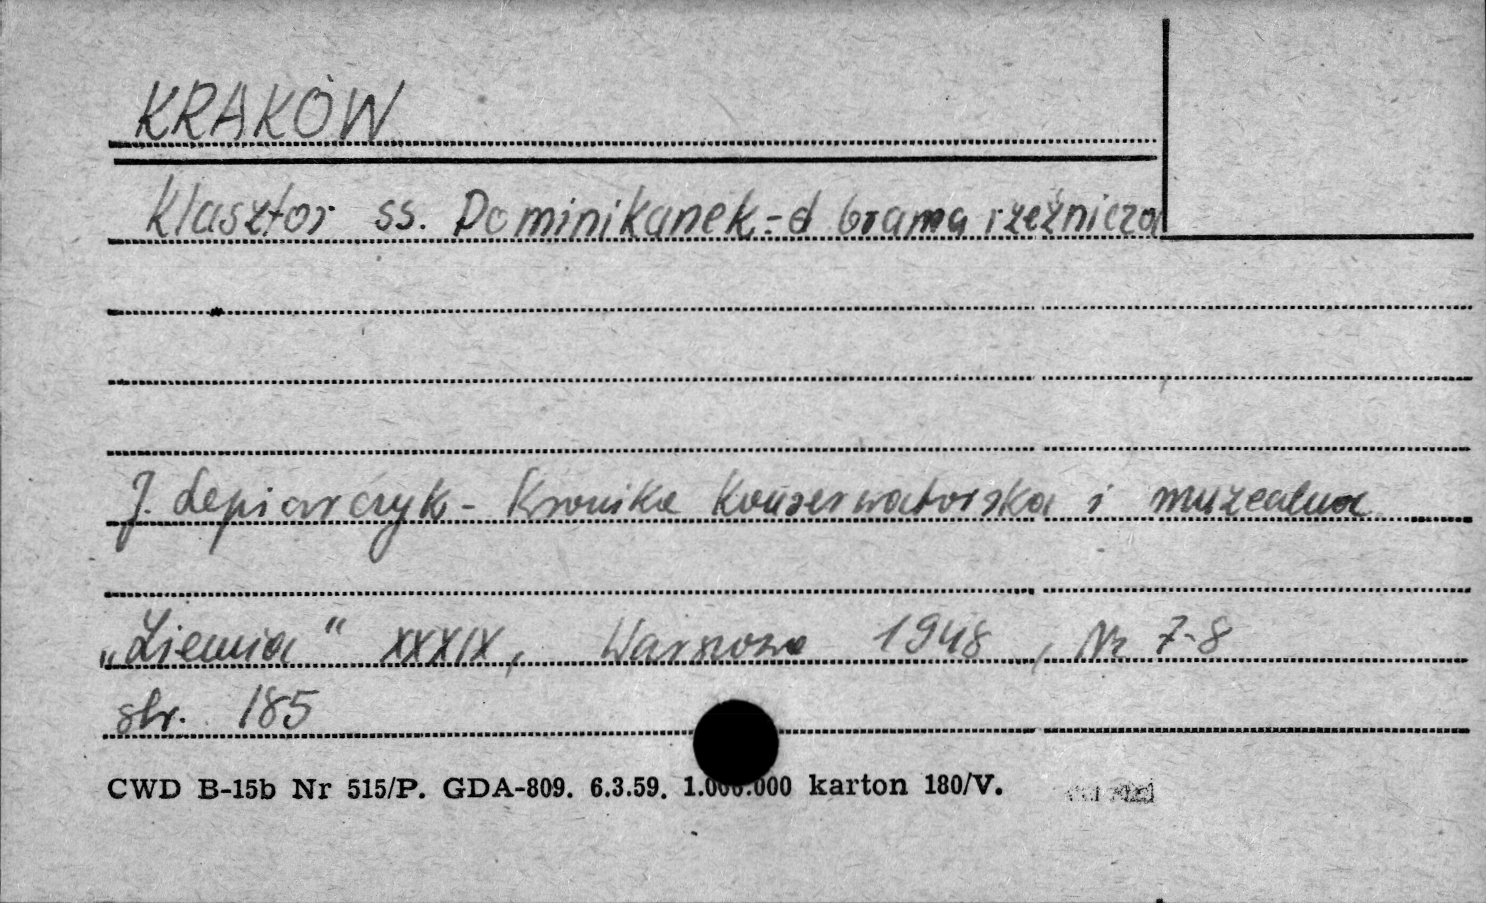 KRAKÓW
Klasztor ss. Dominikanek-d brama rzeźnicza
J. Lepiarczyk - Kronika Konserwatorska i muzealna
„Ziemia" XXXIX, Warszawa 1948, Nr 7-8
str. 185
CWD B-15b Nr 515/P. GDA-809. 6.3.59. 1.000.000 karton 180/V.